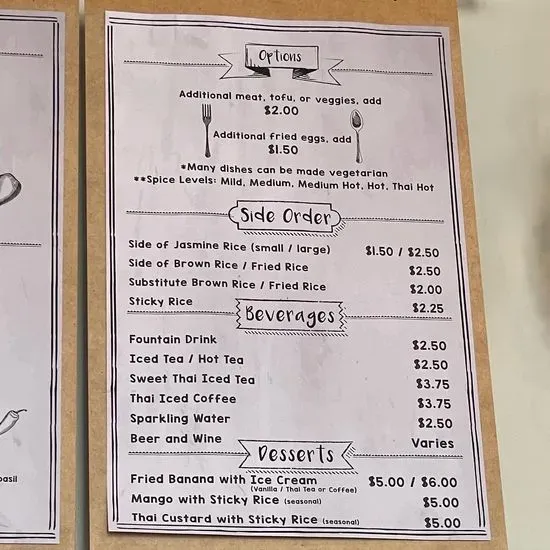 Options
Additional meat, tofu, or veggies, add
$2.00
Additional fried eggs, add
$1.50
*Many dishes can be made vegetarian
**Spice Levels: Mild, Medium, Medium Hot, Hot, Thai Hot
Side Order
Side of Jasmine Rice (small / large) $1.50 / $2.50
Side of Brown Rice / Fried Rice $2.50
Substitute Brown Rice / Fried Rice $2.00
Sticky Rice $2.25
Beverages
Fountain Drink $2.50
Iced Tea / Hot Tea $2.50
Sweet Thai Iced Tea $3.75
Thai Iced Coffee $3.75
Sparkling Water $2.50
Beer and Wine Varies
Desserts
Fried Banana with Ice Cream $5.00 / $6.00
(Vanilla / Thai Tea or Coffee)
Mango with Sticky Rice (seasonal) $5.00
Thai Custard with Sticky Rice (seasonal) $5.00
basil